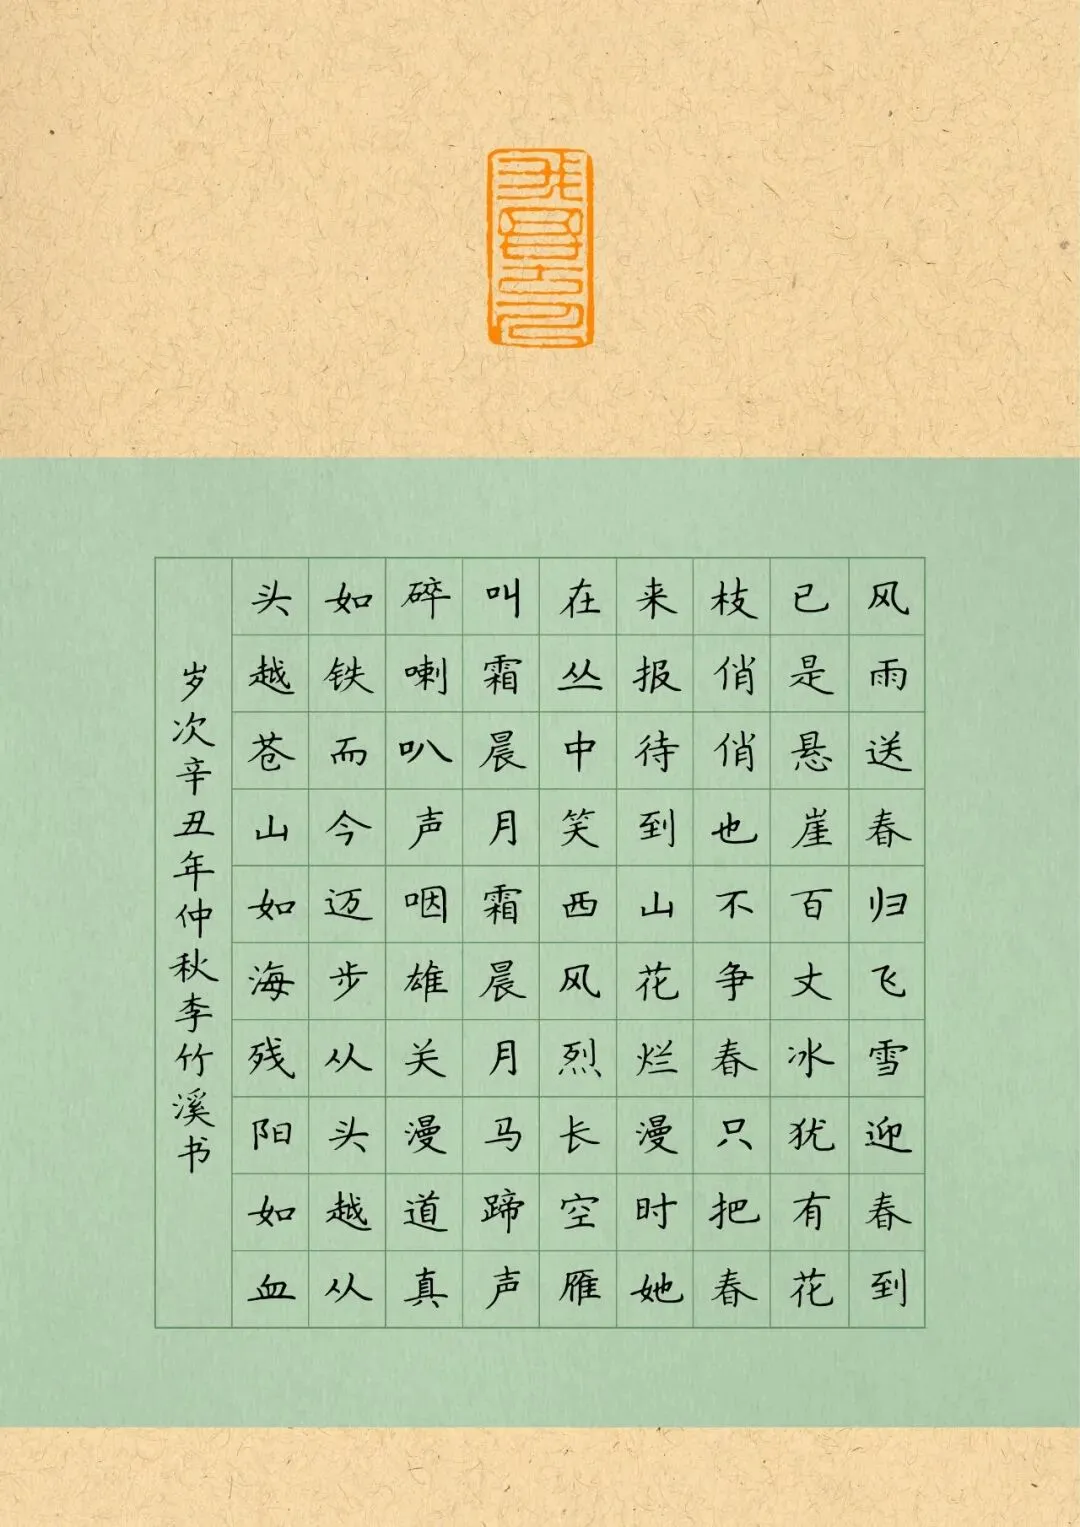 风雨送春归飞雪迎春到
已是悬崖百丈冰犹有花
枝俏俏也不争春只把春
来报待到山花烂漫时她
在丛中笑西风烈长空雁
叫霜晨月霜晨月马蹄声
碎喇叭声咽雄关漫道真
如铁而今迈步从头越从
头越苍山如海残阳如血
岁次辛丑年仲秋李竹溪书